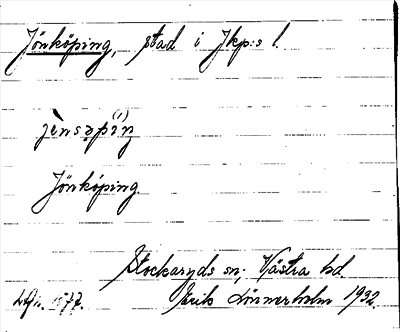 Jönköping, stad i Jkp:s l.
Jönköping.
Stockaryds sn, Västra hd.
Erik Linnerholm 1932.